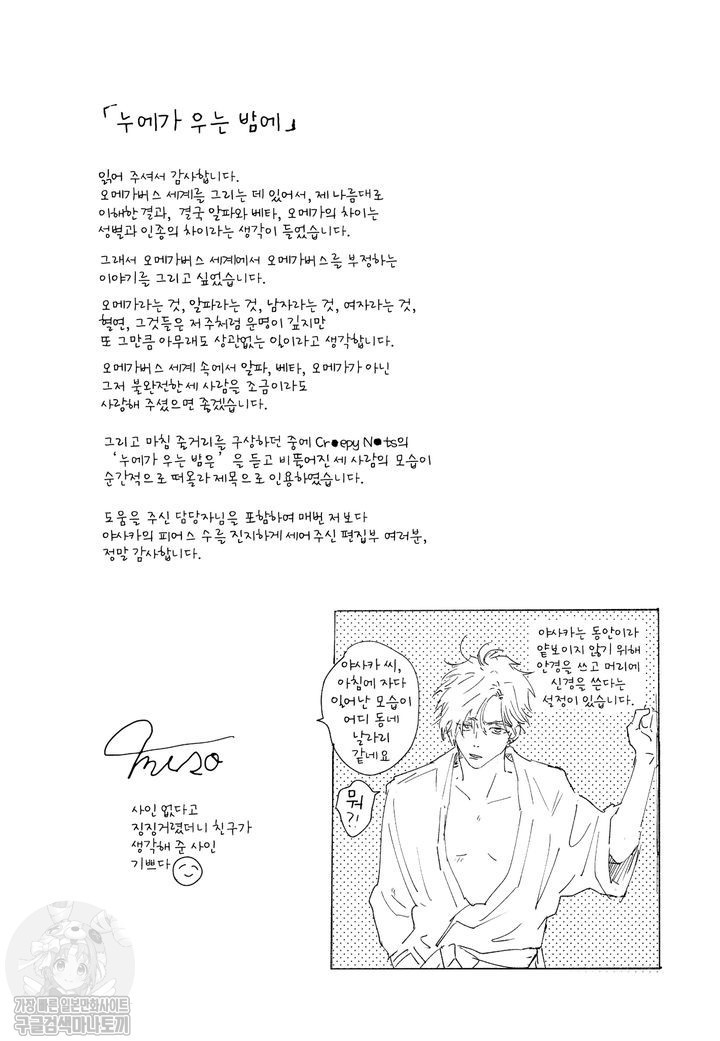 「누에가 우는 밤에」
읽어 주셔서 감사합니다.
오메가버스 세계를 그리는 데 있어서, 제 나름대로
이해한 결과, 결국 알파와 베타, 오메가의 차이는
성별과 인종의 차이라는 생각이 들었습니다.
그래서 오메가버스 세계에서 오메가버스를 부정하는
이야기를 그리고 싶었습니다.
오메가라는 것, 알파라는 것, 남자라는 것, 여자라는 것,
혈연, 그것들은 저주처럼 운명이 깊지만
또 그만큼 아무래도 상관없는 일이라고 생각합니다.
오메가버스 세계 속에서 알파, 베타, 오메가가 아닌
그저 불완전한 세 사람을 조금이라도
사랑해 주셨으면 좋겠습니다.
그리고 마침 줄거리를 구상하던 중에 Cr●epy N●ts의
'누에가 우는 밤은' 을 듣고 비뚤어진 세 사람의 모습이
순간적으로 떠올라 제목으로 인용하였습니다.
도움을 주신 담당자님을 포함하여 매번 저보다
야사카의 피어스 수를 진지하게 세어 주신 편집부 여러분,
정말 감사합니다.
야사카는 동안이라
얕보이지 않기 위해
안경을 쓰고 머리에
신경을 쓴다는
설정이 있습니다.
야사카 씨,
아침에 자다
일어난 모습이
어디 동네
날라리
같네요
뭐
?!
miso
사인 없다고
징징거렸더니 친구가
생각해 준 사인
기쁘다
가장 빠른 일본만화사이트
구글검색마나토끼